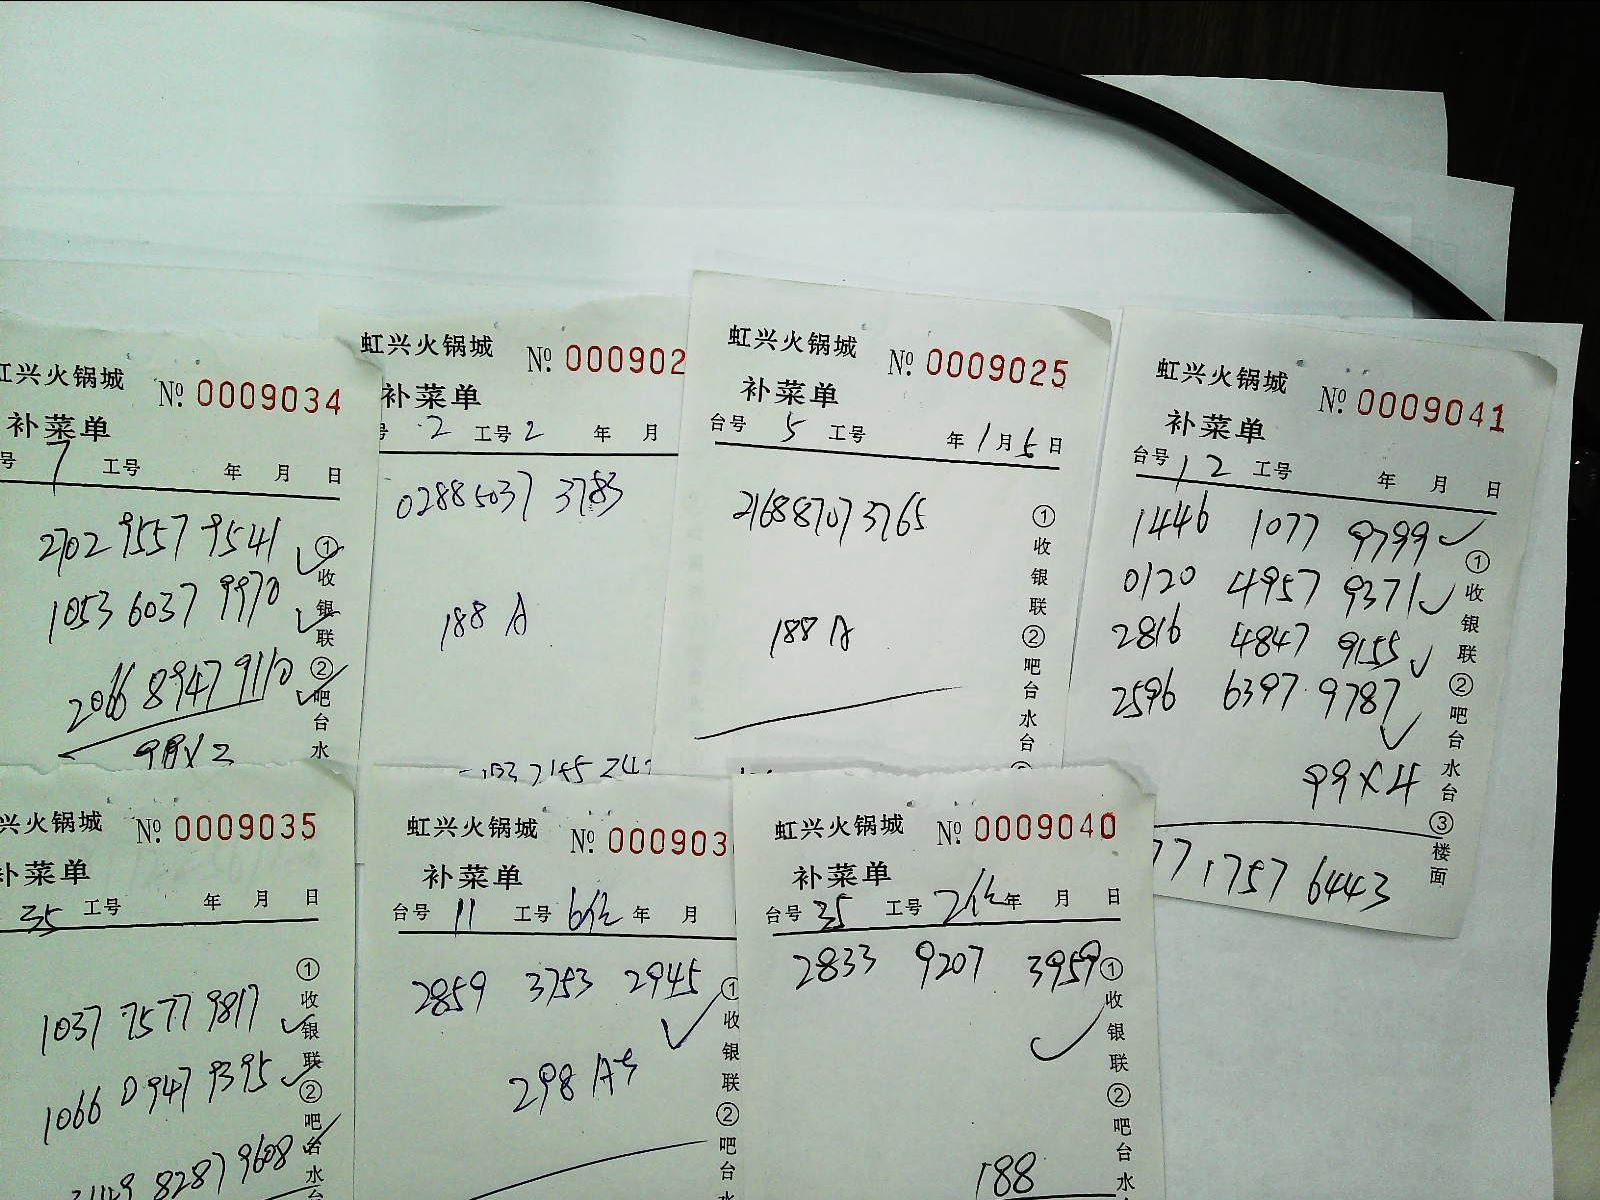 虹兴火锅城 № 0009034
补菜单
号 7 工号 年 月 日
2702 9557 9541
1053 6037 9970
2066 8947 9110
① 收 银 联 ② 吧 台 水
虹兴火锅城 № 000902
补菜单
2 工号 2 年 月
0288 5037 3783
188 A
虹兴火锅城 № 0009025
补菜单
台号 5 工号 年 1 月 5 日
2168 8707 3765
188 A
① 收 银 联 ② 吧 台 水 台
虹兴火锅城 № 0009041
补菜单
台号 12 工号 年 月 日
1446 1077 9799
0120 4957 9371
2816 4847 9155
2596 6397 9787
99×4
77 1757 6443
① 收 银 联 ② 吧 台 水 台 ③ 楼 面
兴火锅城 № 0009035
补菜单
35 工号 年 月 日
1037 7577 9817
1066 0947 9395
8287 9608
① 收 银 联 ② 吧 台 水 台
虹兴火锅城 № 000903
补菜单
台号 11 工号 年 月
2859 3753 2945
298 A
① 收 银 联 ② 吧 台 水
虹兴火锅城 № 0009040
补菜单
台号 35 工号 年 月 日
2833 9207 3959
188
① 收 银 联 ② 吧 台 水